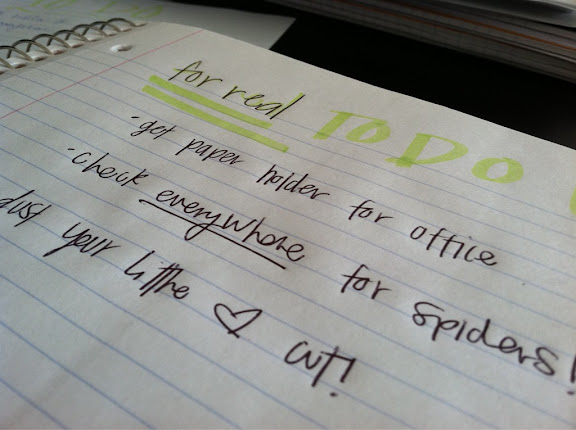 for real TODO
- get paper holder for office
- check everywhere for spiders!
dust your little ♡ out!